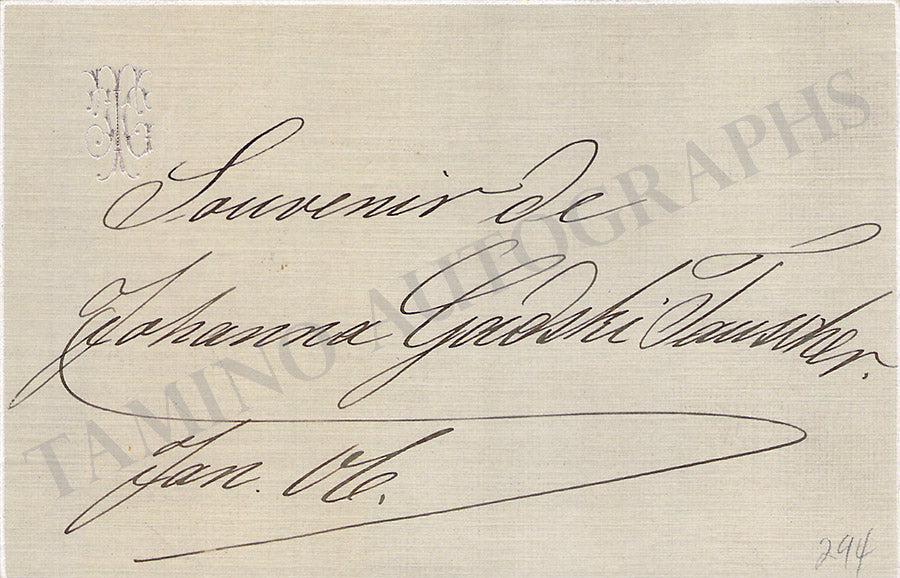 Souvenir de
Johanna Gadski Tauscher.
Jan. 06.
294
TAMINO AUTOGRAPHS